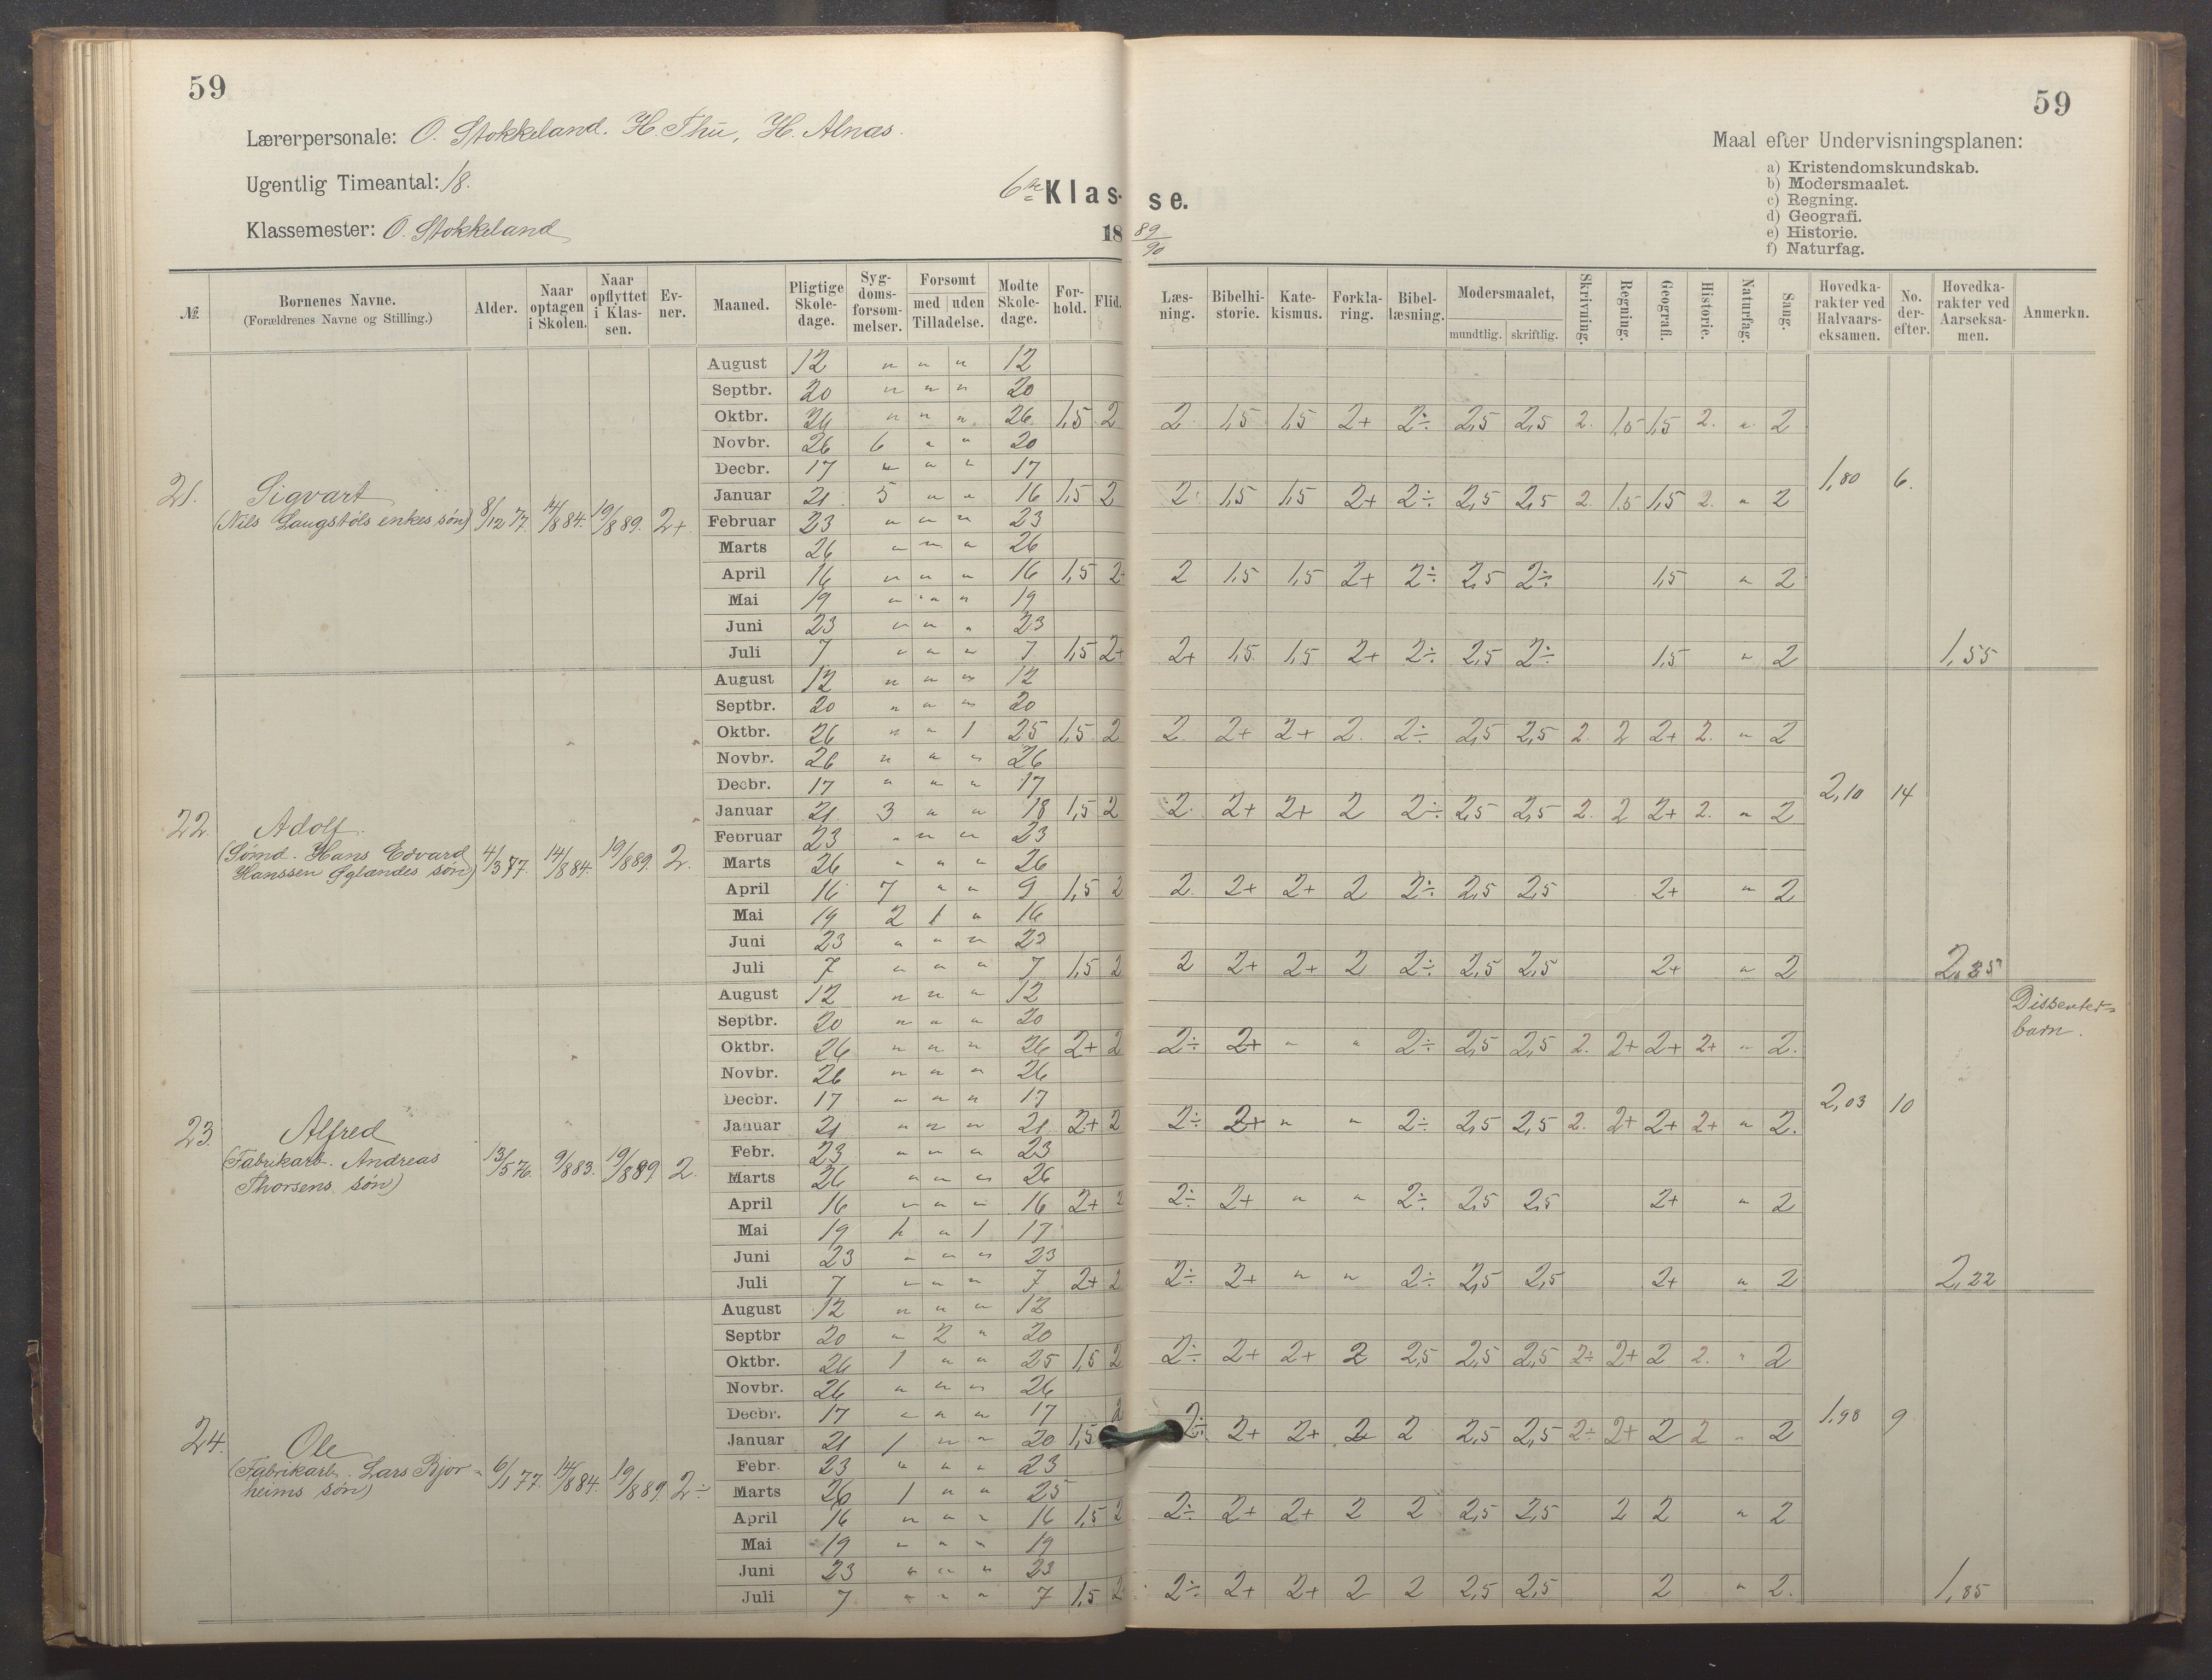 59
59
Lærerpersonale: O. Stokkeland. H. Thu, H. Alnæs.
Ugentlig Timeantal: 18.
Klassemester: O. Stokkeland
6te Klas- se.
18 89/90
Maal efter Undervisningsplanen:
a) Kristendomskundskab.
b) Modersmaalet.
c) Regning.
d) Geografi.
e) Historie.
f) Naturfag.
№. | Børnenes Navne. (Forældrenes Navne og Stilling.) | Alder. | Naar optagen i Skolen. | Naar opflyttet i Klassen. | Evner. | Maaned. | Pligtige Skoledage. | Sygdomsforsømmelser. | Forsømt med | uden Tilladelse. | Mødte Skoledage. | Forhold. | Flid. | Læsning. | Bibelhistorie. | Katekismus. | Forklaring. | Bibellæsning. | Modersmaalet, mundtlig. | skriftlig. | Skrivning. | Regning. | Geografi. | Historie. | Naturfag. | Sang. | Hovedkarakter ved Halvaarseksamen. | No. derefter. | Hovedkarakter ved Aarseksamen. | Anmerkn.
21. Sigvart
(Nils Laugstøls enkes søn) 8/12 77. 14/8 84. 19/8 89. 2+
August 12 " " " 12
Septbr. 20 " " " 20
Oktbr. 26 " " " 26 1,5 2 2 1,5 1,5 2+ 2÷ 2,5 2,5 2. 1,5 1,5 2. " 2
Novbr. 26 6 " " 20
Decbr. 17 " " " 17
1,80 6.
Januar 21 5 " " 16 1,5 2 2 1,5 1,5 2+ 2÷ 2,5 2,5 2. 1,5 1,5 2. " 2
Februar 23 " " " 23
Marts 26 " " " 26
April 16 " " " 16 1,5 2+ 2 1,5 1,5 2+ 2÷ 2,5 2÷ 1,5 " 2
Mai 19 " " " 19
Juni 23 " " " 23
Juli 7 " " " 7 1,5 2+ 2+ 1,5 1,5 2+ 2÷ 2,5 2÷ 1,5 " 2 1,55
22. Adolf.
(Sømd. Hans Edvard
Hanssen Øglændes søn) 4/3 77. 14/8 84. 19/8 89. 2.
August 12 " " " 12
Septbr. 20 " " " 20
Oktbr. 26 " " 1 25 1,5 2 2 2+ 2+ 2. 2÷ 2,5 2,5 2. 2 2+ 2. " 2
Novbr. 26 " " " 26
Decbr. 17 " " " 17
2,10 14
Januar 21 3 " " 18 1,5 2 2 2+ 2+ 2 2÷ 2,5 2,5 2. 2 2+ 2. " 2
Februar 23 " " " 23
Marts 26 " " " 26
April 16 7 " " 9 1,5 2 2 2+ 2+ 2 2÷ 2,5 2,5 2+ " 2
Mai 19 2 1 " 16
Juni 23 " " " 23
Juli 7 " " " 7 1,5 2 2 2+ 2+ 2 2÷ 2,5 2,5 2+ " 2
Dissenter-
barn.
23. Alfred
(Fabrikarb. Andreas
Thorsens søn) 13/5 76. 9/8 83. 19/8 89 2.
August 12 " " " 12
Septbr. 20 " " " 20
Oktbr. 26 " " " 26 2+ 2 2÷ 2+ " " 2÷ 2,5 2,5 2. 2+ 2+ 2+ " 2.
Novbr. 26 " " " 26
Decbr. 17 " " " 17
2,03 10
Januar 21 " " " 21 2+ 2 2÷ 2+ " " 2÷ 2,5 2,5 2. 2+ 2+ 2+ " 2.
Febr. 23 " " " 23
Marts 26 " " " 26
April 16 " " " 16 2+ 2 2÷ 2+ " " 2÷ 2,5 2,5 2+ " 2
Mai 19 1 " 1 17
Juni 23 " " " 23
Juli 7 " " " 7 2+ 2 2÷ 2+ " " 2÷ 2,5 2,5 2+ " 2 2,22
24. Ole
(Fabrikarb. Lars Bjor-
heims søn) 6/1 77. 14/8 84. 19/8 89. 2÷
August 12 " " " 12
Septbr 20 " 2 " 20
Oktbr. 26 1 " " 25 1,5 2 2÷ 2+ 2+ 2 2,5 2,5 2,5 2÷ 2+ 2 2. " 2
Novbr. 26 " " " 26
Decbr. 17 " " " 17
1,98 9
Januar 21 1 " " 20 1,5 2 2÷ 2+ 2+ 2 2 2,5 2,5 2÷ 2+ 2 2 " 2
Febr. 23 " " " 23
Marts 26 1 " " 25
April 16 " " " 16 1,5 2 2÷ 2+ 2+ 2 2 2,5 2,5 2 2 " 2
Mai 19 " " " 19
Juni 23 " " " 23
Juli 7 " " " 7 1,5 2 2÷ 2+ 2+ 2 2 2,5 2,5 2 " 2. 1,85